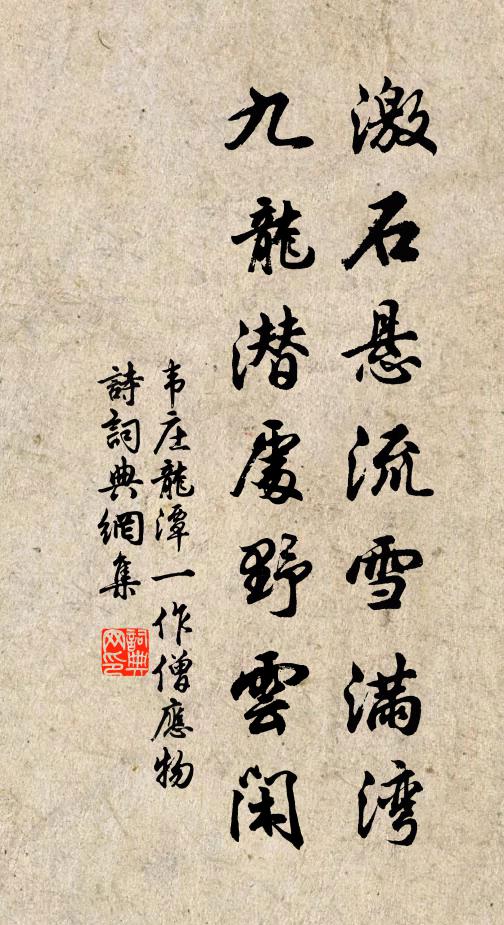 激石悬流雪满湾
九龍潜處野雲闲
韦庄龍潭一作僧應物
詩詞典網集
詞典网印